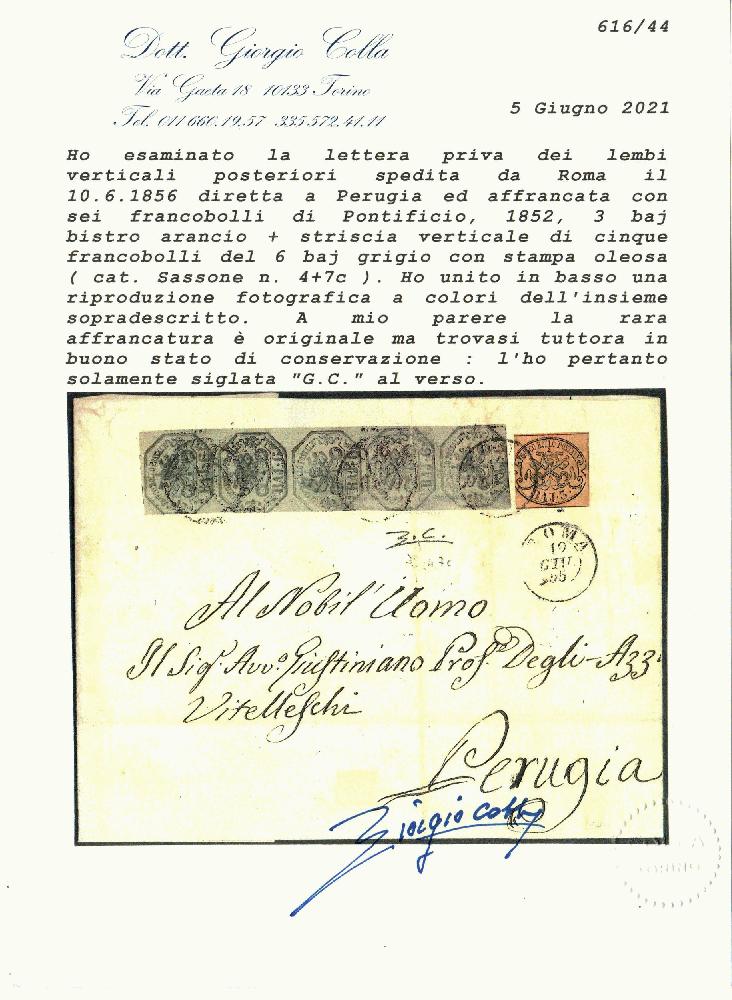 616/44
Dott. Giorgio Colla
Via Gaeta 18 10133 Torino
Tel. 011 660.19.57 335.572.41.11
5 Giugno 2021
Ho esaminato la lettera priva dei lembi
verticali posteriori spedita da Roma il
10.6.1856 diretta a Perugia ed affrancata con
sei francobolli di Pontificio, 1852, 3 baj
bistro arancio + striscia verticale di cinque
francobolli del 6 baj grigio con stampa oleosa
( cat. Sassone n. 4+7c ). Ho unito in basso una
riproduzione fotografica a colori dell'insieme
sopradescritto. A mio parere la rara
affrancatura è originale ma trovasi tuttora in
buono stato di conservazione : l'ho pertanto
solamente siglata "G.C." al verso.
G.C.
ROMA
10
GIU
Al Nobil Uomo
Il Sigr. Avvo. Giustiniano Profr. Degli-Azzi
Vitelleschi
Perugia
Giorgio Colla